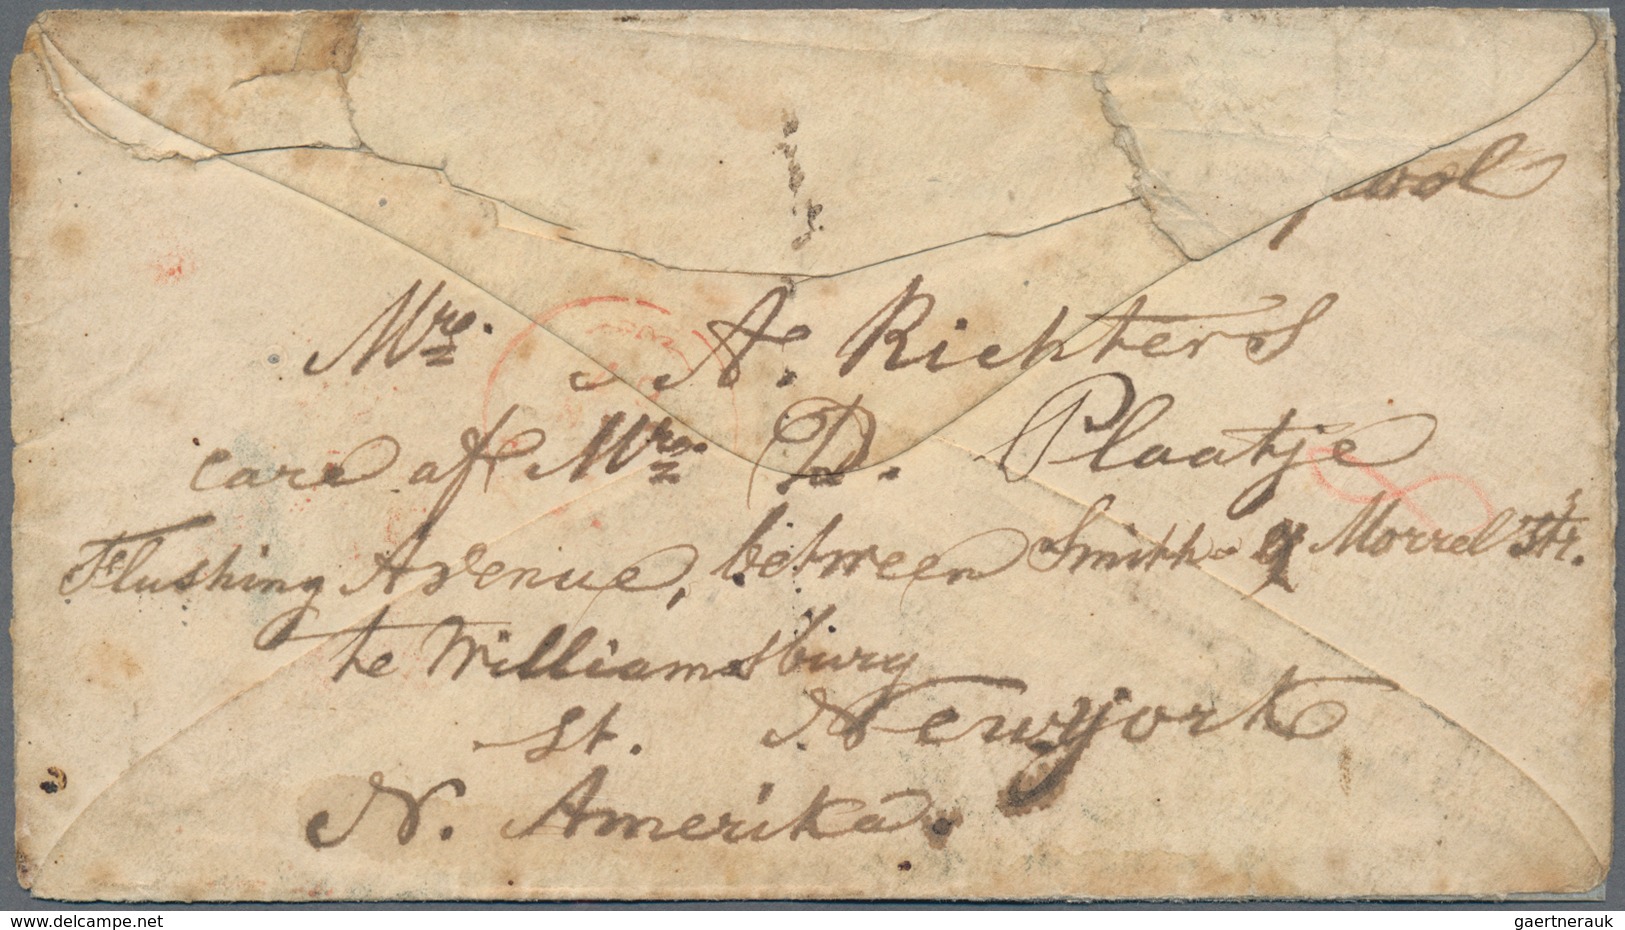 pool
Mrs. A. Richters
care of Mrs. D. Plaatje
Flushing Avenue, between Smith & Morrel Str.
te Williamsburg
st. Newyork
N. Amerika.
www.delcampe.net
gaertnerauk